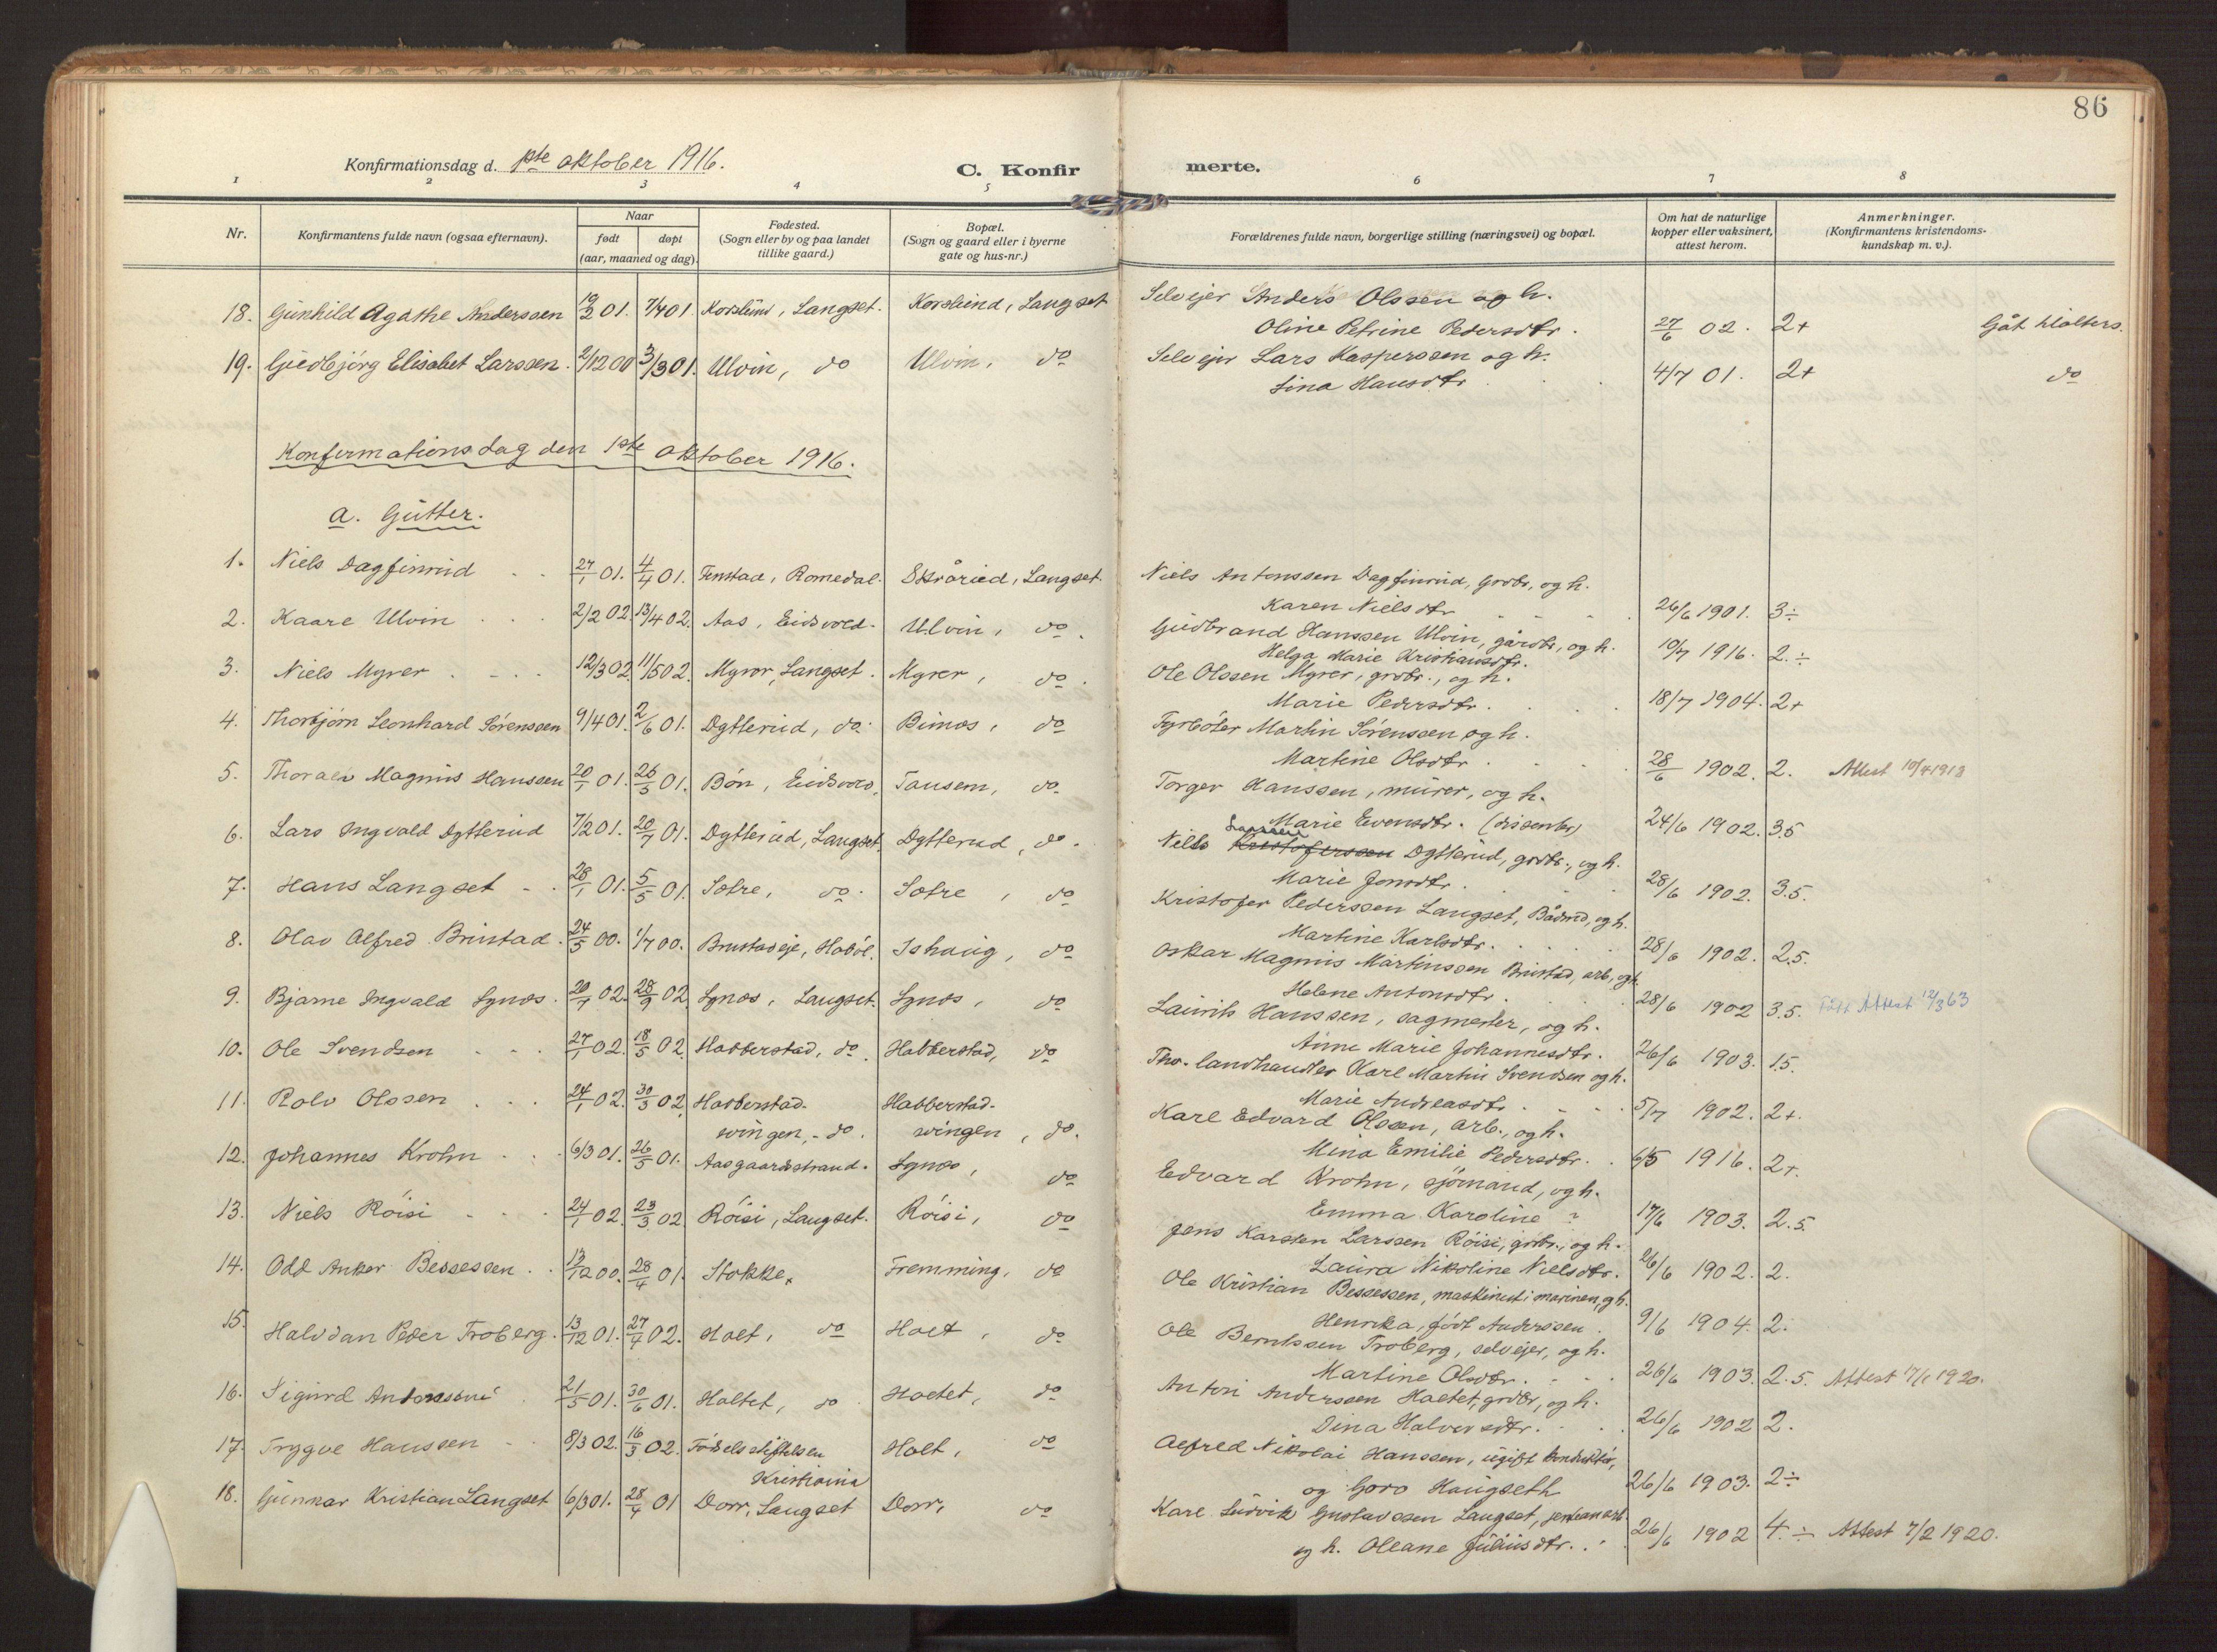 86
Konfirmationsdag d. 1ste oktober 1916.
C. Konfirmerte.
1 2 3 4 5 6 7 8
Nr.
Konfirmantens fulde navn (ogsaa efternavn).
Naar
født døpt
(aar, maaned og dag).
Fødested.
(Sogn eller by og paa landet
tillike gaard.)
Bopæl.
(Sogn og gaard eller i byerne
gate og hus-nr.)
Forældrenes fulde navn, borgerlige stilling (næringsvei) og bopæl.
Om hat de naturlige
kopper eller vaksinert,
attest herom.
Anmerkninger.
(Konfirmantens kristendoms-
kundskap m. v.).
18. Gunhild Agathe Anderssen 19/2 01. 7/4 01 Korslund, Langset. Korslund, Langset Selveier Anders Olssen og h.
Oline Petrine Pedersdtr. 27/6 02. 2+ Gåt til alters.
19. Gudbjørg Elisabet Larssen. 2/12 00 3/3 01. Ulvin, do Ulvin, do Selveier Lars Kasperssen og h.
Lina Hansdtr 4/7 01. 2+ do
Konfirmationsdag den 1ste oktober 1916.
a. Gutter.
1. Niels Dagfinrud 27/1 01. 4/4 01. Finstad, Romedal. Skrårud, Langset. Niels Antonssen Dagfinrud, grdbr, og h.
Karen Nielsdtr 26/6 1901. 3÷
2. Kaare Ulvin 2/2 02 13/4 02. Aas, Eidsvold. Ulvin, do. Gudbrand Hanssen Ulvin, gårdbr, og h.
Helga Marie Kristiansdtr. 10/7 1916. 2.÷
3. Niels Myrer 12/3 02 11/5 02. Myrer, Langset. Myrer, do. Ole Olssen Myrer, grdbr., og h.
Marie Pedersdtr. 18/7 1904. 2+
4. Thorbjørn Leonhard Sørenssen 9/4 01. 2/6 01. Dytterud, do. Bimos, do Fyrbøter Martin Sørenssen og h.
Martine Olsdtr 28/6 1902. 2. Attest 10/4 1918
5. Thoralv Magnus Hanssen 20/1 01. 26/5 01. Bøn, Eidsvold. Tausem, do. Torger Hanssen, murer, og h.
Marie Evensdtr. (dissenter) 24/6 1902. 3.5
6. Lars Ingvald Dytterud 7/2 01. 20/7 01. Dytterud, Langset. Dytterud, do. Niels Kristoferssen Larssen Dytterud, grdbr., og h.
Marie Jonsdtr. 28/6 1902. 3.5.
7. Hans Langset 28/1 01. 5/5 01. Sotre, do. Sotre, do Kristofer Pederssen Langset, Bådmd, og h.
Martine Karlsdtr. 28/6 1902. 2.5.
8. Olav Alfred Brustad. 24/5 00. 1/7 00. Brustadeje, Hobøl. Ishaug, do Oskar Magnus Martinssen Brustad, arb., og h.
Helene Antonsdtr. 28/6 1902 3.5. Attest 12/3 63
9. Bjarne Ingvald Lynos. 20/7 02. 28/9 02. Lynos, Langset. Lynos, do Laurits Hanssen, sagmester, og h.
Anne Marie Johannesdtr. 26/6 1903. 1.5.
10. Ole Svendsen 27/1 02. 18/5 02. Habberstad, do. Habberstad, do Fho. landhandler Karl Martin Svendsen og h.
Marie Andreasdtr. 5/7 1902. 2+.
11. Rolv Olssen 24/1 02. 30/3 02. Habberstad- Habberstad- Karl Edvard Olssen, arb., og h.
svingen, - do. svingen, do. Mina Emilie Pedersdtr. 6/5 1916. 2+.
12. Johannes Krohn 6/3 01. 26/5 01. Aasgaardsstrand. Lynos, do Edvard Krohn, sjømand, og h.
Emma Karoline ? 17/6 1903. 2.5.
13. Niels Røisi 24/1 02. 23/3 02 Røisi, Langset. Røisi, do Jens Karsten Larssen Røisi, grdbr., og h.
Laura Nikoline Nielsdtr. 26/6 1902. 2.
14. Odd Anker Bessessen. 13/12 00. 28/4 01. Stokke. Fremming, do Ole Kristian Bessessen, maskinist i marinen, og h.
Henrika, født Anderssen 9/6 1904. 2.
15. Halvdan Peder Froberg. 13/12 01. 27/4 02. Holt, do Holt, do Ole Berntssen Froberg, selveier, og h.
Martine Olsdtr. 26/6 1903. 2.5. Attest 17/1 1920.
16. Sigurd Antonssen 21/5 01. 30/6 01. Holtet, do Holtet, do Anton Anderssen Holtet, grdbr, og h.
Dina Halvorsdtr. 26/6 1902 2.
17. Trygve Hanssen 8/3 02. 16/3 02. Fødselsstiftelsen Holt, do Alfred Nikolai Hanssen, ugift konduktør,
Kristiania og Goro Haugseth 26/6 1903. 2÷
18. Gunnar Kristian Langset 6/3 01. 28/4 01 Dorr, Langset Dorr, do Karl Ludvik Gustavssen Langset, jernbanearb.
og h. Oleane Juliusdtr. 26/6 1902 4.÷ Attest 7/2 1920.